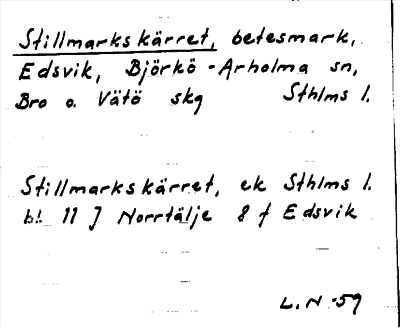 Stillmarkskärret, betesmark,
Edsvik, Björkö-Arholma sn,
Bro o. Vätö skg Sthlms l.
Stillmarkskärret, ek Sthlms l.
bl. 11 J Norrtälje 8 f Edsvik
L.N-59